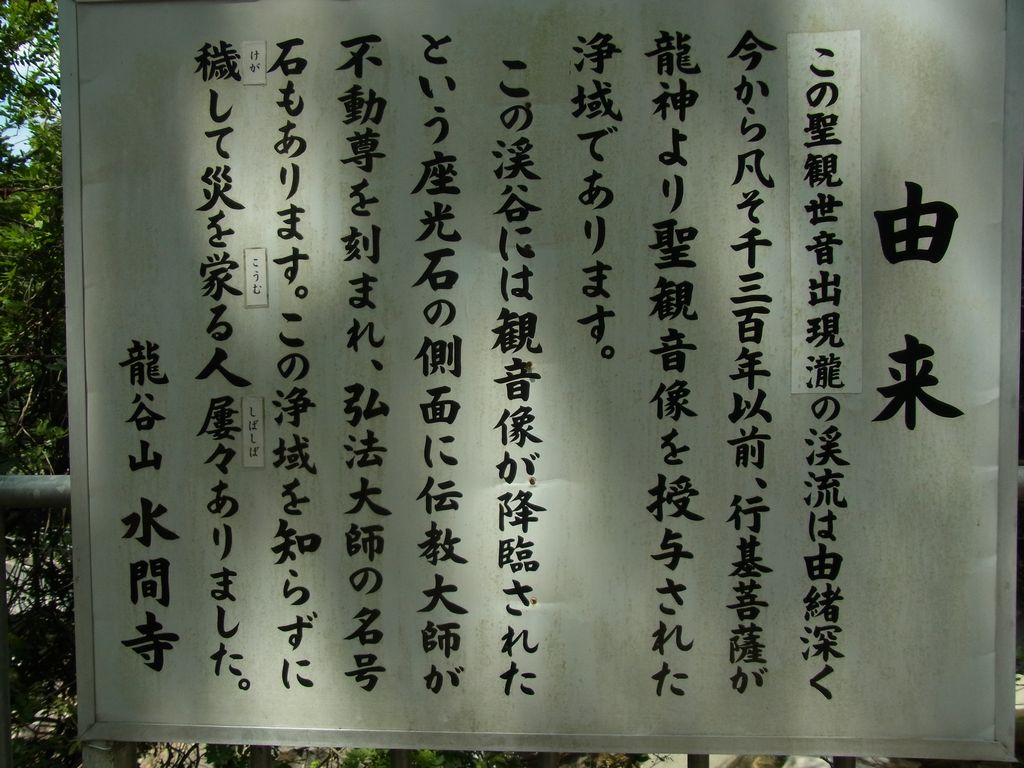 由来
この聖観世音出現瀧の渓流は由緒深く
今から凡そ千三百年以前、行基菩薩が
龍神より聖観音像を授与された
浄域であります。
この渓谷には観音像が降臨された
という座光石の側面に伝教大師が
不動尊を刻まれ、弘法大師の名号
石もあります。この浄域を知らずに
けが
こうむ
しばしば
穢して災を蒙る人屢々ありました。
龍谷山 水間寺